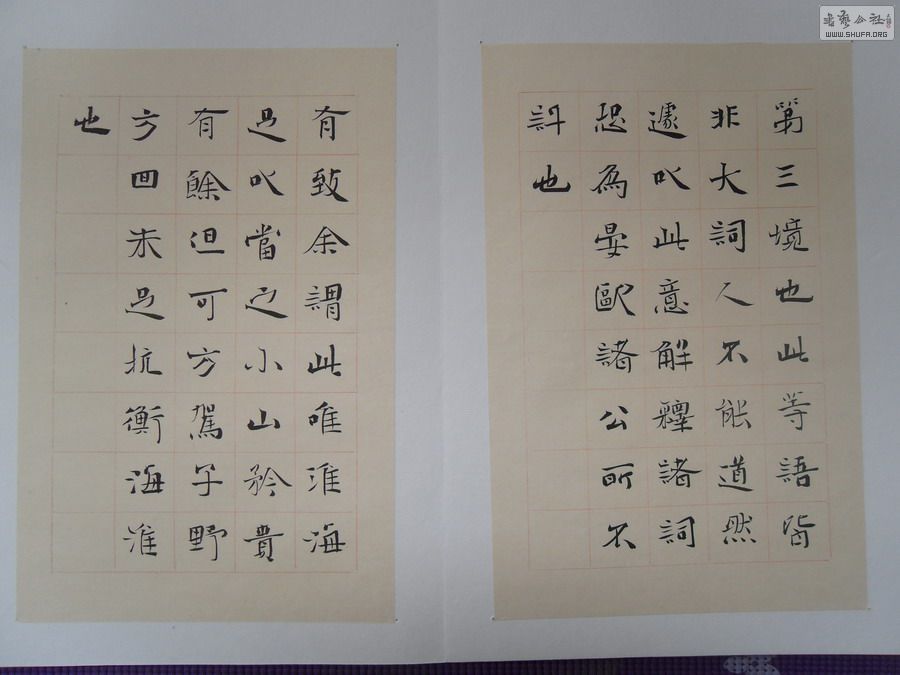 第三境也此等語皆
非大詞人不能道然
遽以此意解釋諸詞
恐為晏歐諸公所不
許也
有致余謂此唯淮海
足以當之小山矜貴
有餘但可方駕子野
方回未足抗衡海淮
也
書藝公社
WWW.SHUFA.ORG